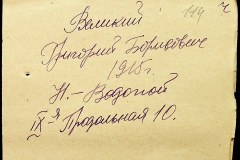 Великий 114
Григорий Борисович
1915г.
Н.-Водопой
IX-я Продольная 10.